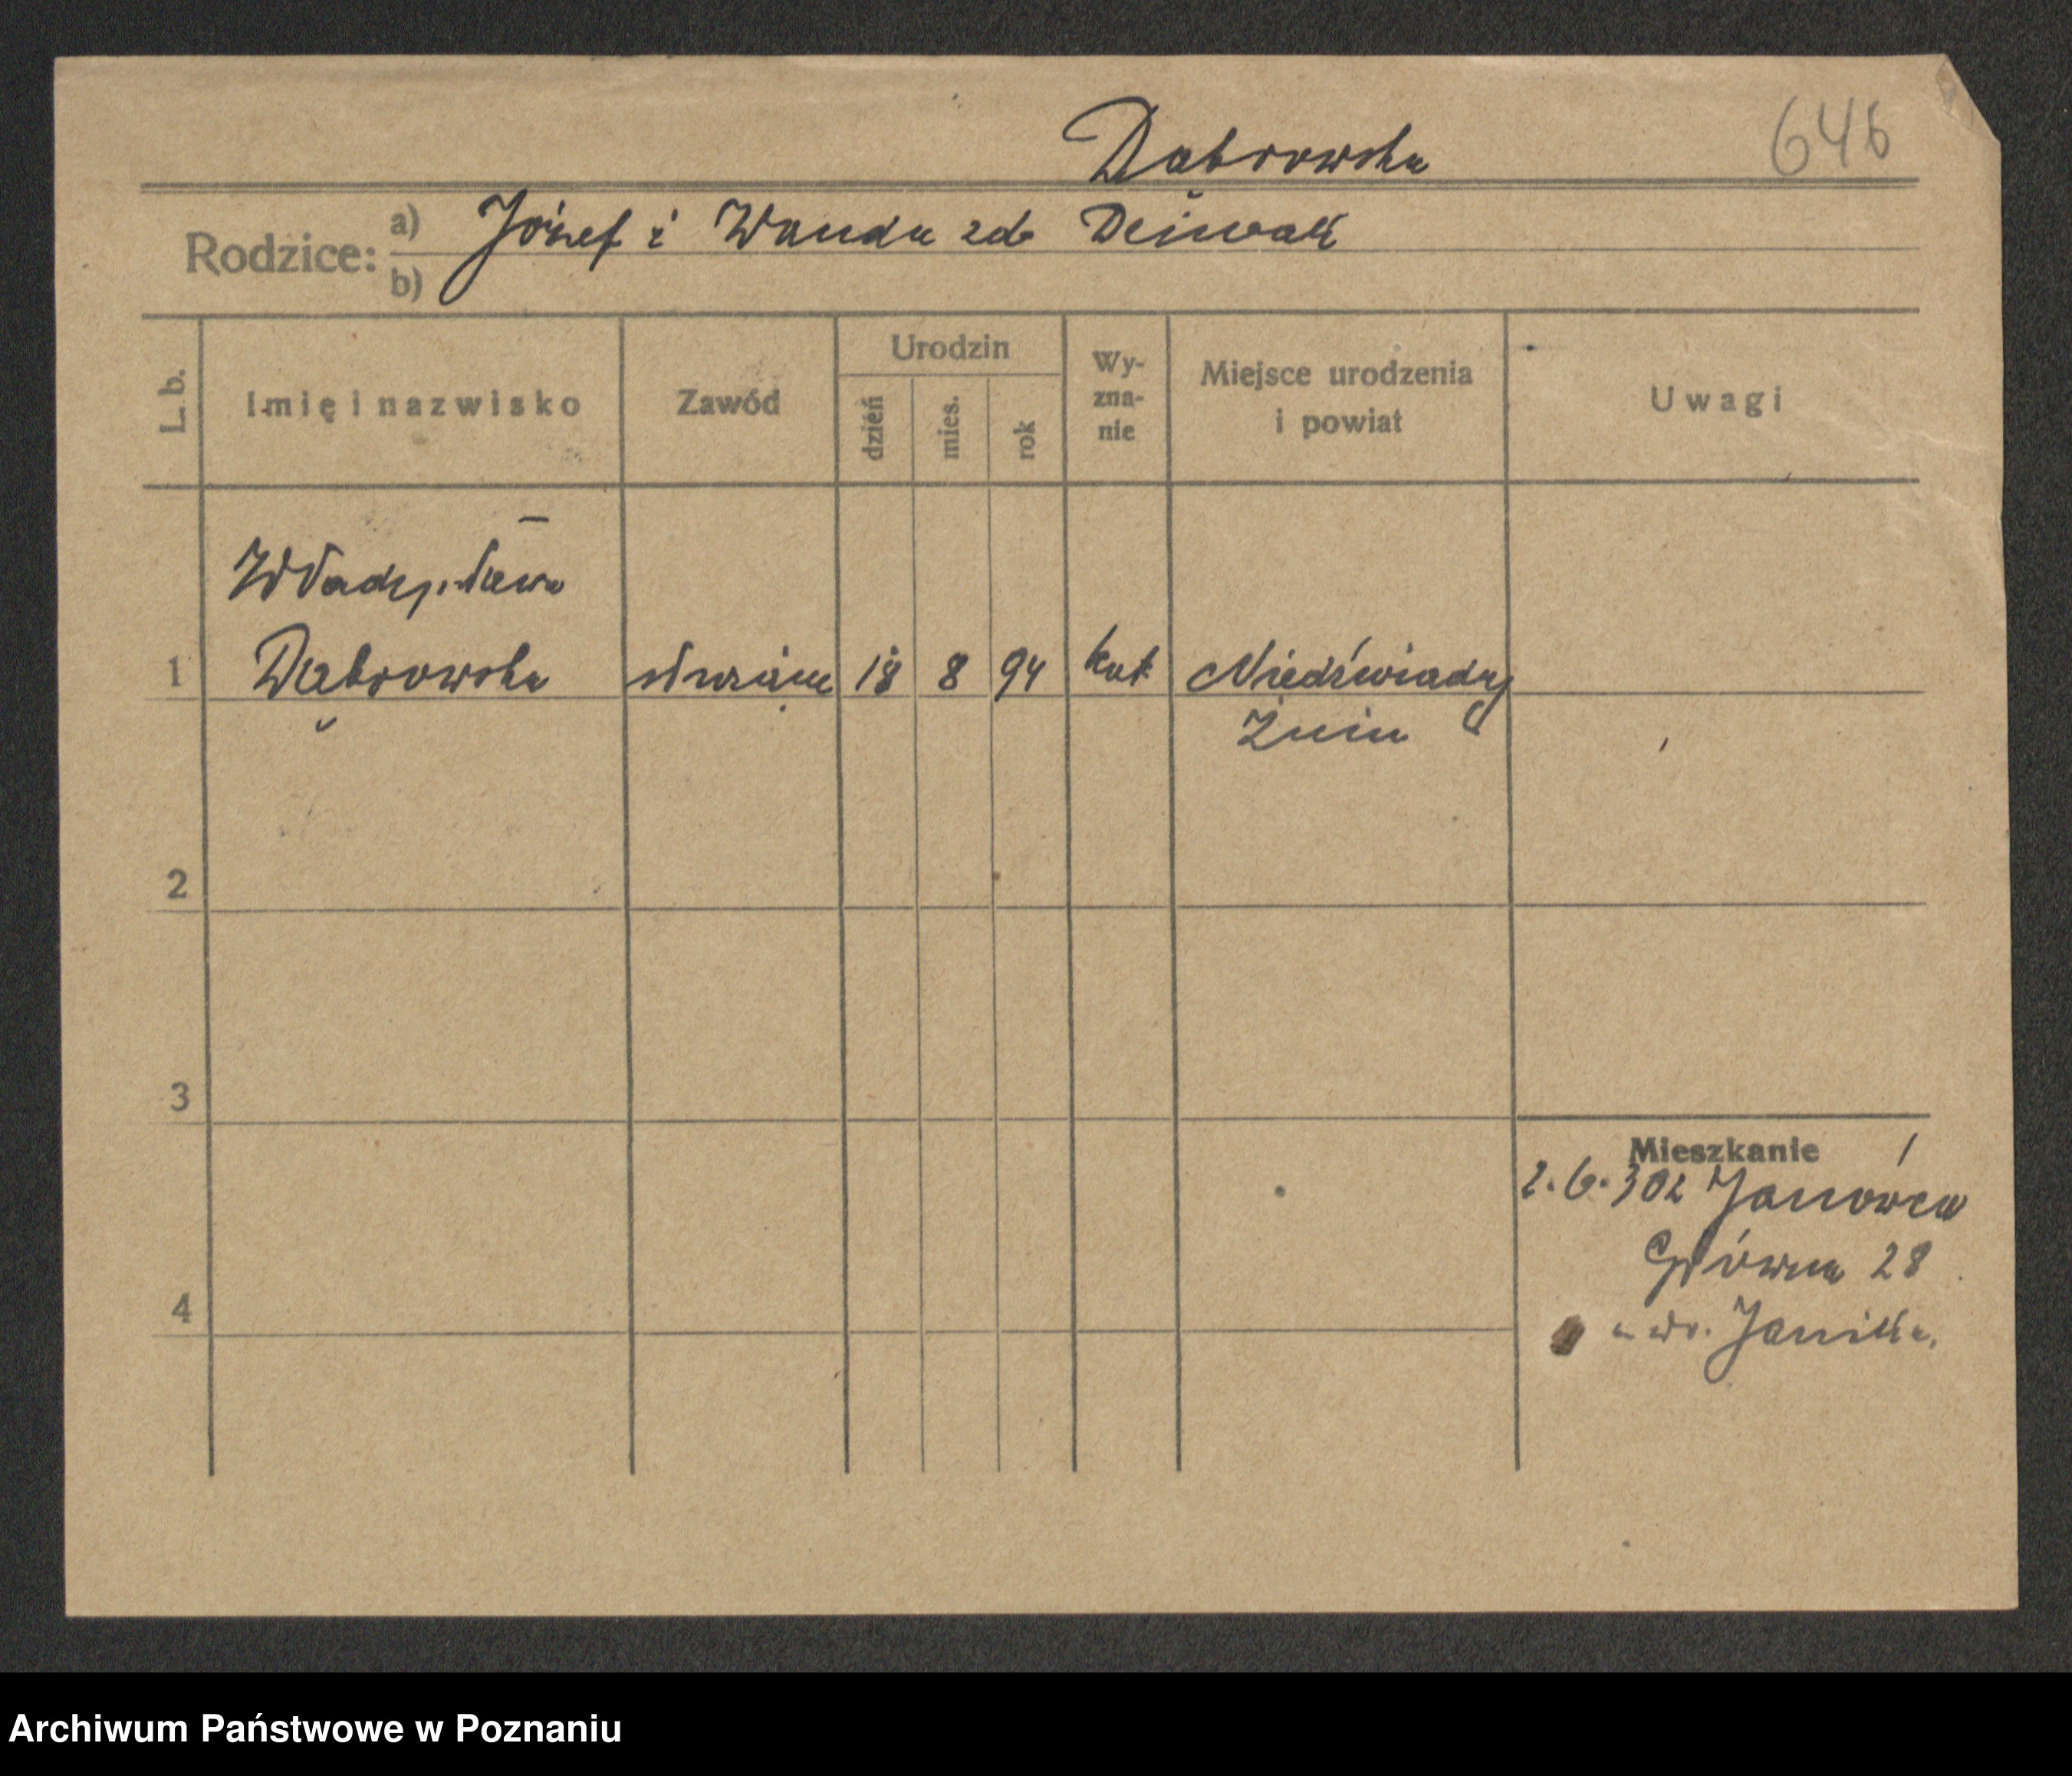 Dabrowska 646
Rodzice: a) Józef i Wanda zd
b)
L. b. Imię i nazwisko Zawód Urodzin dzień mies. rok Wy-zna-nie Miejsce urodzenia i powiat Uwagi
Władysława
1 Dąbrowska służąca 18 8 94 kat Niedźwiady
Żnin
2
3
Mieszkanie
2.6. Janówca
4 Główna 28
Janika.
Archiwum Państwowe w Poznaniu